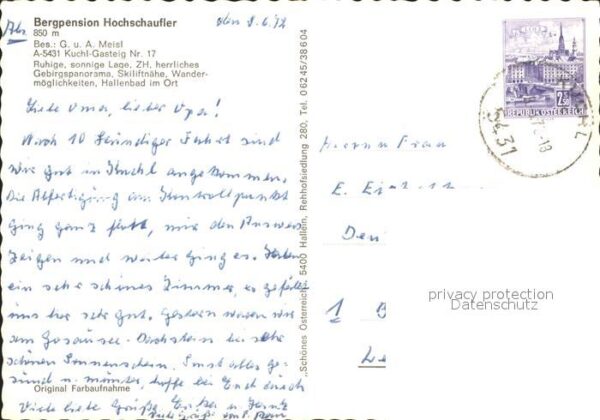 Abs
Bergpension Hochschaufler
850 m
Bes.: G. u. A. Meisl
A-5431 Kuchl-Gasteig Nr. 17
Ruhige, sonnige Lage, ZH, herrliches
Gebirgspanorama, Skiliftnähe, Wander-
möglichkeiten, Hallenbad im Ort
den 8.6.72
Liebe Oma, lieber Opa!
Nach 10 stündiger Fahrt sind
wir gut in Kuchl angekommen.
Die Abfertigung am Kontrollpunkt
ging ganz glatt, nur den Ausweis
zeigen und weiter ging es. Haben
ein sehr schönes Zimmer, es gefällt
uns hier sehr gut. Gestern waren wir
am Gosausee - Dachstein bei sehr
schönen Sonnenschein. Sonst alles ge-
sund u. munter, hoffe bei Euch auch
Viele liebe Grüße
Original Farbaufnahme
„Schönes Österreich", 5400 Hallein, Rehhofsiedlung 280, Tel. 06245/38604
2.50
REPUBLIK ÖSTERREICH
5431
Herrn u Frau
E.
1 B
privacy protection
Datenschutz